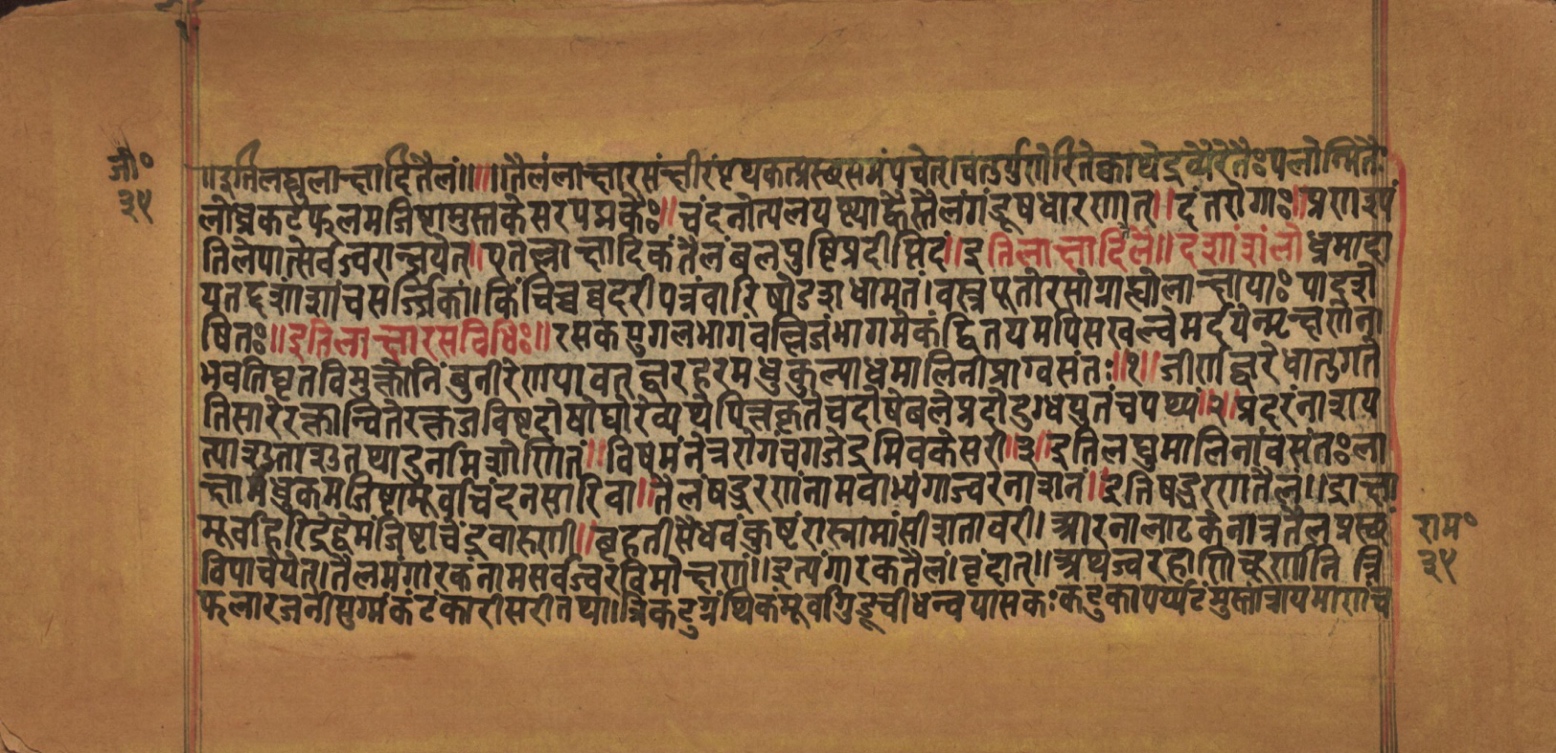 जी॰
३५
॥इतिलघुलाक्षादितैलं॥॥॥तैलंलाक्षारसंक्षीरंपृथकत्प्रस्थसमंपचेत्।चतुर्गुणेरितेक्वाथेद्रव्यैरेतैःपलोन्मितैः
लोध्रकटफलमंजिष्टामुस्तकेसरपद्मकैः॥चंदनोत्पलयष्ट्याह्वैस्तैलंगंडूषधारणात्॥दंतरोगाः॥प्रणाशं
तिलेपात्सर्वज्वरान्जयेत्॥एतल्लाक्षादिकंतैलंबलपुष्टिप्रदीप्तिदं॥इतिलाक्षादितैलं॥दशांशंलोध्रमादा
यतद्दशांशांचसर्ज्जिकां।किंचिच्चबदरीपत्रंवारिषोडशधामतं।वस्त्रपूतोरसोग्राह्योलाक्षायाःपादशे
षितः॥इतिलाक्षारसविधिः॥रसकयुगलभागंवल्लिजंभागमेकंद्वितयमपिसखल्वेमर्दयेन्म्रक्षणेना
भवतिघृतविमुक्तोनिंबुनीरेणयावतज्वरहरमधुकुल्याध्वमालिनीप्राग्वसंतः॥१॥जीर्णज्वरेधातुगते
तिसारेरक्तान्वितेरक्तजविष्टदोषेघोरेव्यथेपित्तकृतेचदोषेबलप्रदोदुग्धयुतंचपथ्यं॥२॥प्रदरंनाशय
त्याशुतथादुर्नामशोणितं॥विषमंनेत्ररोगंचगजेंद्रमिवकेसरी॥३॥इतिलघुमालिनीवसंतःला
क्षामधुकमंजिष्टामूर्वाचंदनसारिवा॥तैलंषडूरणंनामवाभ्यंगाज्वरनाशनं॥इतिषडूरणतैलं॥द्राक्षा
मूर्वाहरिद्रेद्वेमंजिष्टाचेंद्रवारुणी॥बृहतीसैंधवंकुष्टंरास्नामांसीशतावरी।आरनालाटकेनात्रतैलप्रस्थं
विपाचयेत्।तैलमंगारकंनामसर्वज्वरविमोक्षणं॥इत्यंगारकतैलं।वृंदात्॥अथज्वरहाणिचूर्णानित्रि
फलारजनीयुग्मंकंटकारीसठीतथा।त्रिकटुग्रंथिकंमूर्वागुडूचीधन्वयासकःकटुकापर्प्पटमुस्तात्रायमाणाच
राम॰
३५